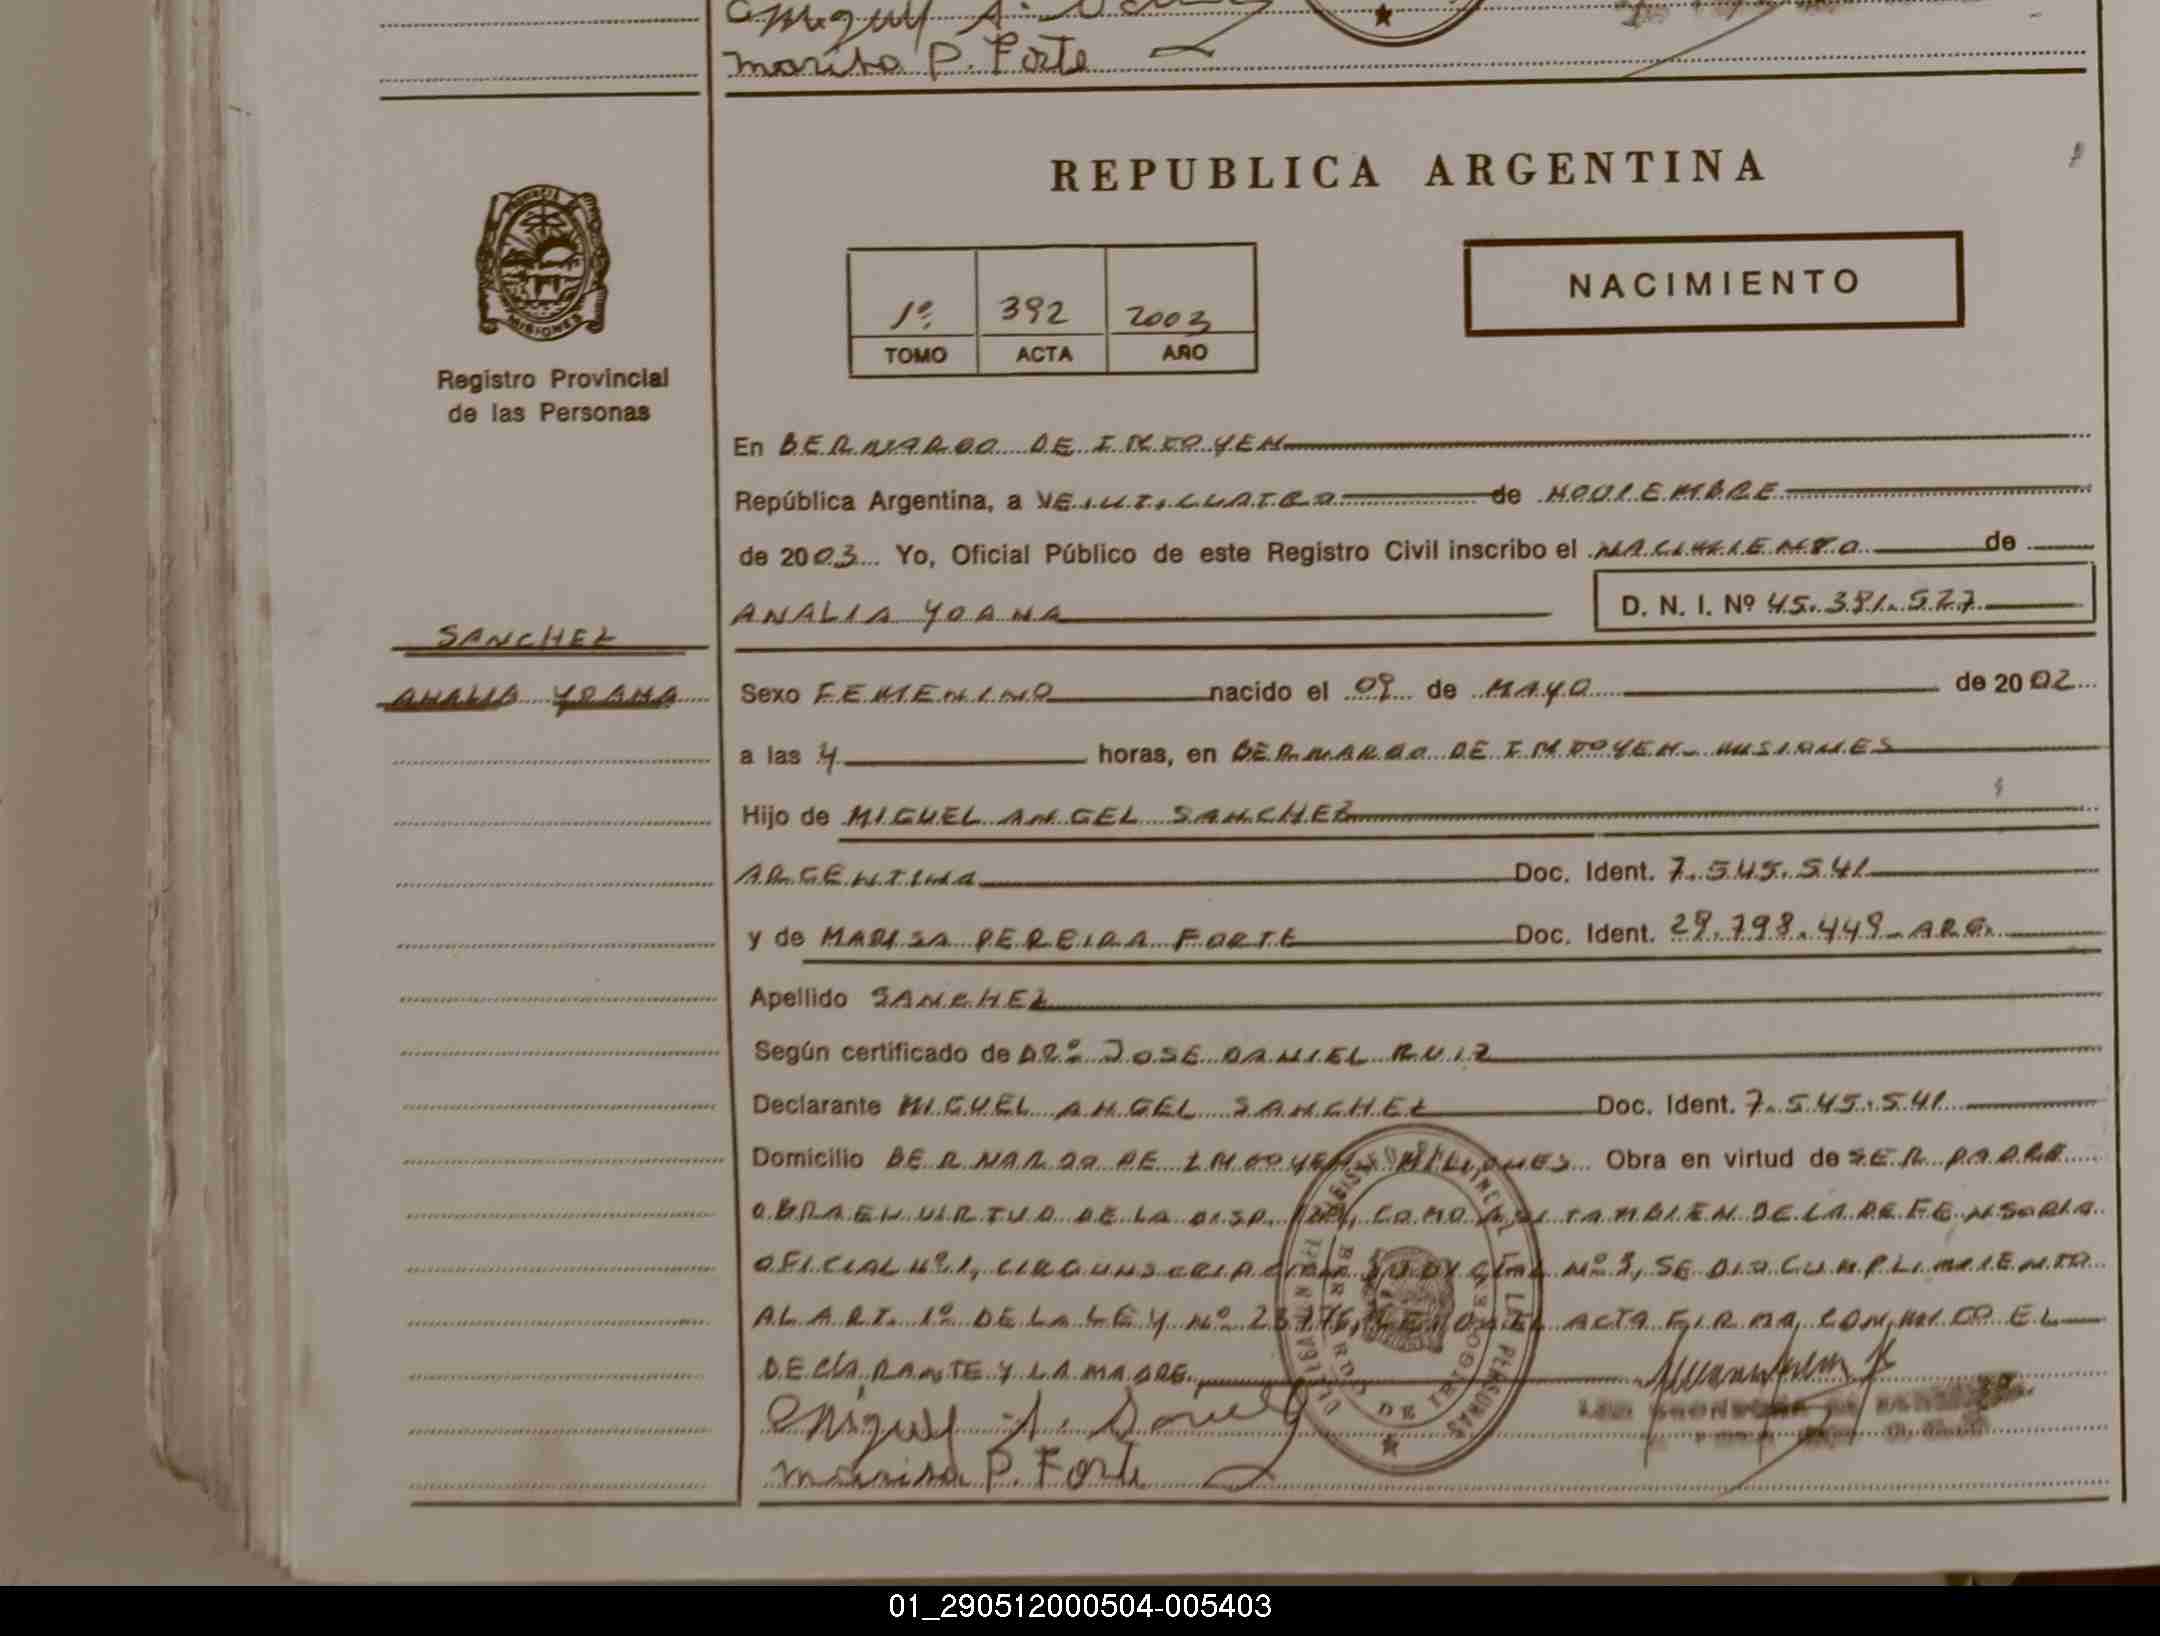 Miguel A.
Marisa P. Forte
REPUBLICA ARGENTINA
NACIMIENTO
1º 392 2003
TOMO ACTA AÑO
MISIONES
Registro Provincial
de las Personas
En BERNARDO DE IRIGOYEN
República Argentina, a VEINTICUATRO de NOVIEMBRE
de 2003 Yo, Oficial Público de este Registro Civil inscribo el NACIMIENTO de
ANALIA YOANA D. N. I. Nº 45.381.527
SANCHEZ
ANALIA YOANA
Sexo FEMENINO nacido el 09 de MAYO de 2002
a las 4 horas, en BERNARDO DE IRIGOYEN - MISIONES
Hijo de MIGUEL ANGEL SANCHEZ
ARGENTINA Doc. Ident. 7.545.541
y de MARISA PEREIRA FORTE Doc. Ident. 29.798.449 - ARG.
Apellido SANCHEZ
Según certificado de DRº JOSE DANIEL RUIZ
Declarante MIGUEL ANGEL SANCHEZ Doc. Ident. 7.545.541
Domicilio BERNARDO DE IRIGOYEN MISIONES Obra en virtud de SER PADRE
OBRA EN VIRTUD DE LA DISP. COMO ASI TAMBIEN DE LA DEFENSORIA
OFICIAL Nº 1, CIRCUNSCRIPCION JUDICIAL Nº 3, SE DIO CUMPLIMIENTO
AL ART. 1º DE LA LEY Nº 23776, LEIDA EL ACTA FIRMA CONMIGO EL
DECLARANTE Y LA MADRE
Miguel A.
Marisa P. Forte
01_290512000504-005403